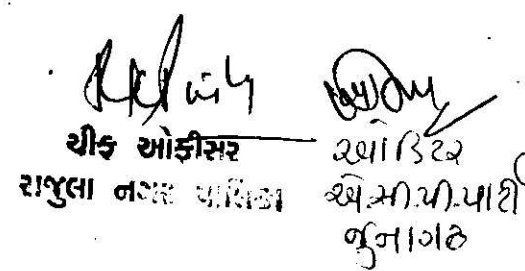 ચીફ ઓફીસર
રાજુલા નગર પાલિકા
ઓડિટર
એ.સી.પી.પાર્ટી
જુનાગઢ